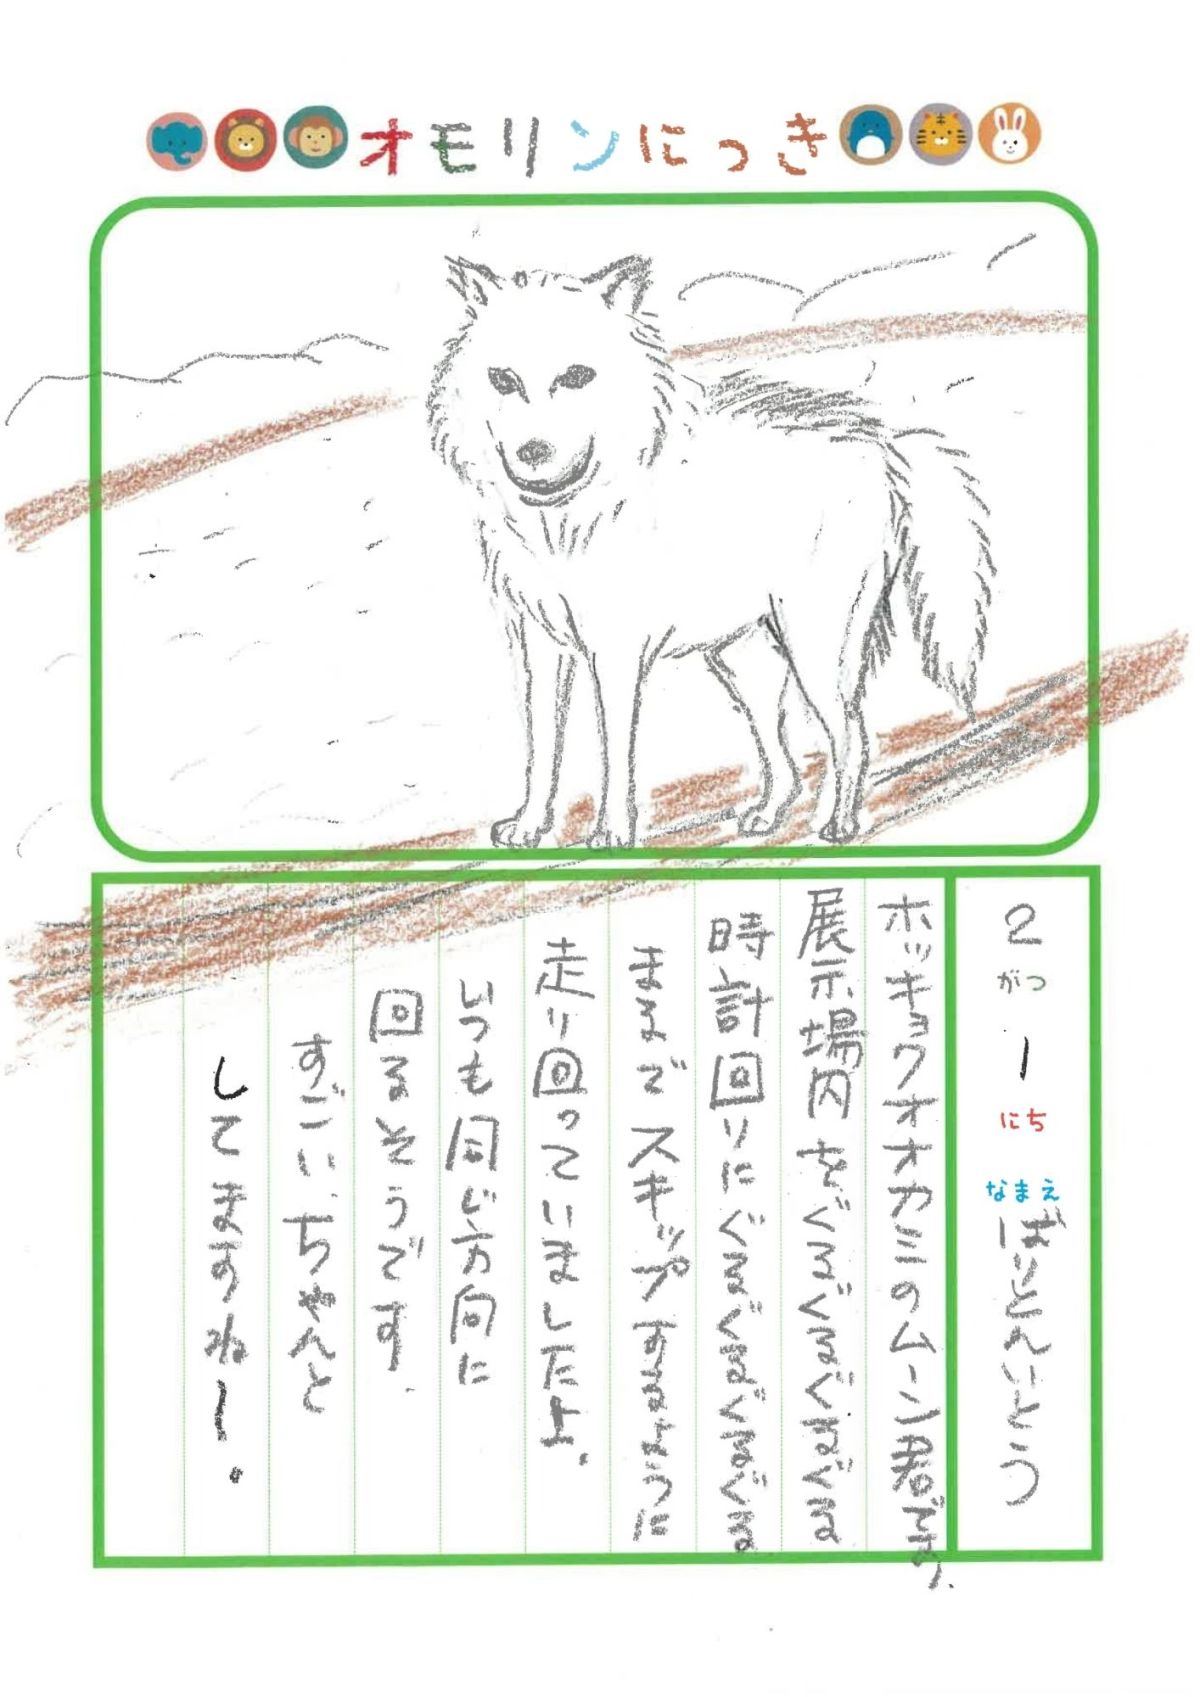 オモリンにっき
2がつ1にち
なまえ ばりとんいとう
ホッキョクオオカミのムーン君です.
展示場内をぐるぐるぐるぐる
時計回りにぐるぐるぐるぐる
まるでスキップするように
走り回っていましたよ.
いつも同じ方向に
回るそうです.
すごい、ちゃんと
してますねー.